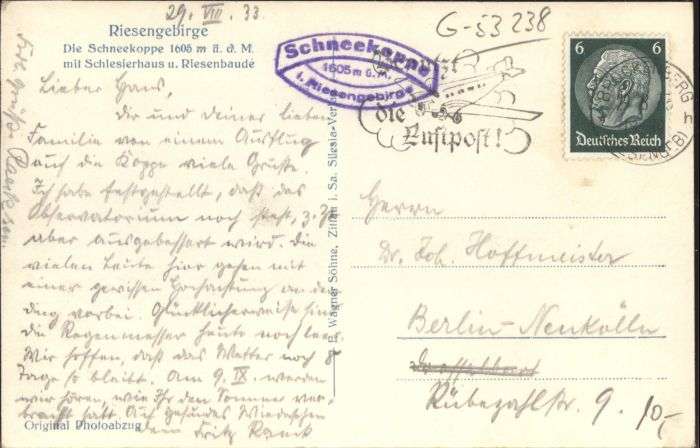 29. VIII. 33
G-53 238
Riesengebirge
Die Schneekoppe 1605 m ü. d. M.
mit Schlesierhaus u. Riesenbaude
Schneekoppe
1605 m ü. M.
i. Riesengebirge
die
Luftpost!
6 6
Deutsches Reich
Lieber Hans,
dir und deiner lieben
Familie von einem Ausflug
auf die Koppe viele Grüsse.
Ich habe festgestellt, daß das
Observatorium noch steht, z. Zt.
aber ausgebessert wird. Die
vielen Leute hier gehen mit
einer gewissen Hochachtung an dem
Ding vorbei. Glücklicherweise sind
die Regenmesser heute noch leer.
Wir hoffen, daß das Wetter noch 8
Tage so bleibt. Am 9. IX. werden
wir hören, wie Ihr den Sommer ver-
bracht habt. Auf gesundes Wiedersehen
Dein Fritz
Original Photoabzug
E. Wagner Söhne, Zittau i. Sa. Silesia-Verlag
Herrn
Dr. Joh. Hoffmeister
Berlin-Neukölln
Rübezahlstr. 9.
10,-